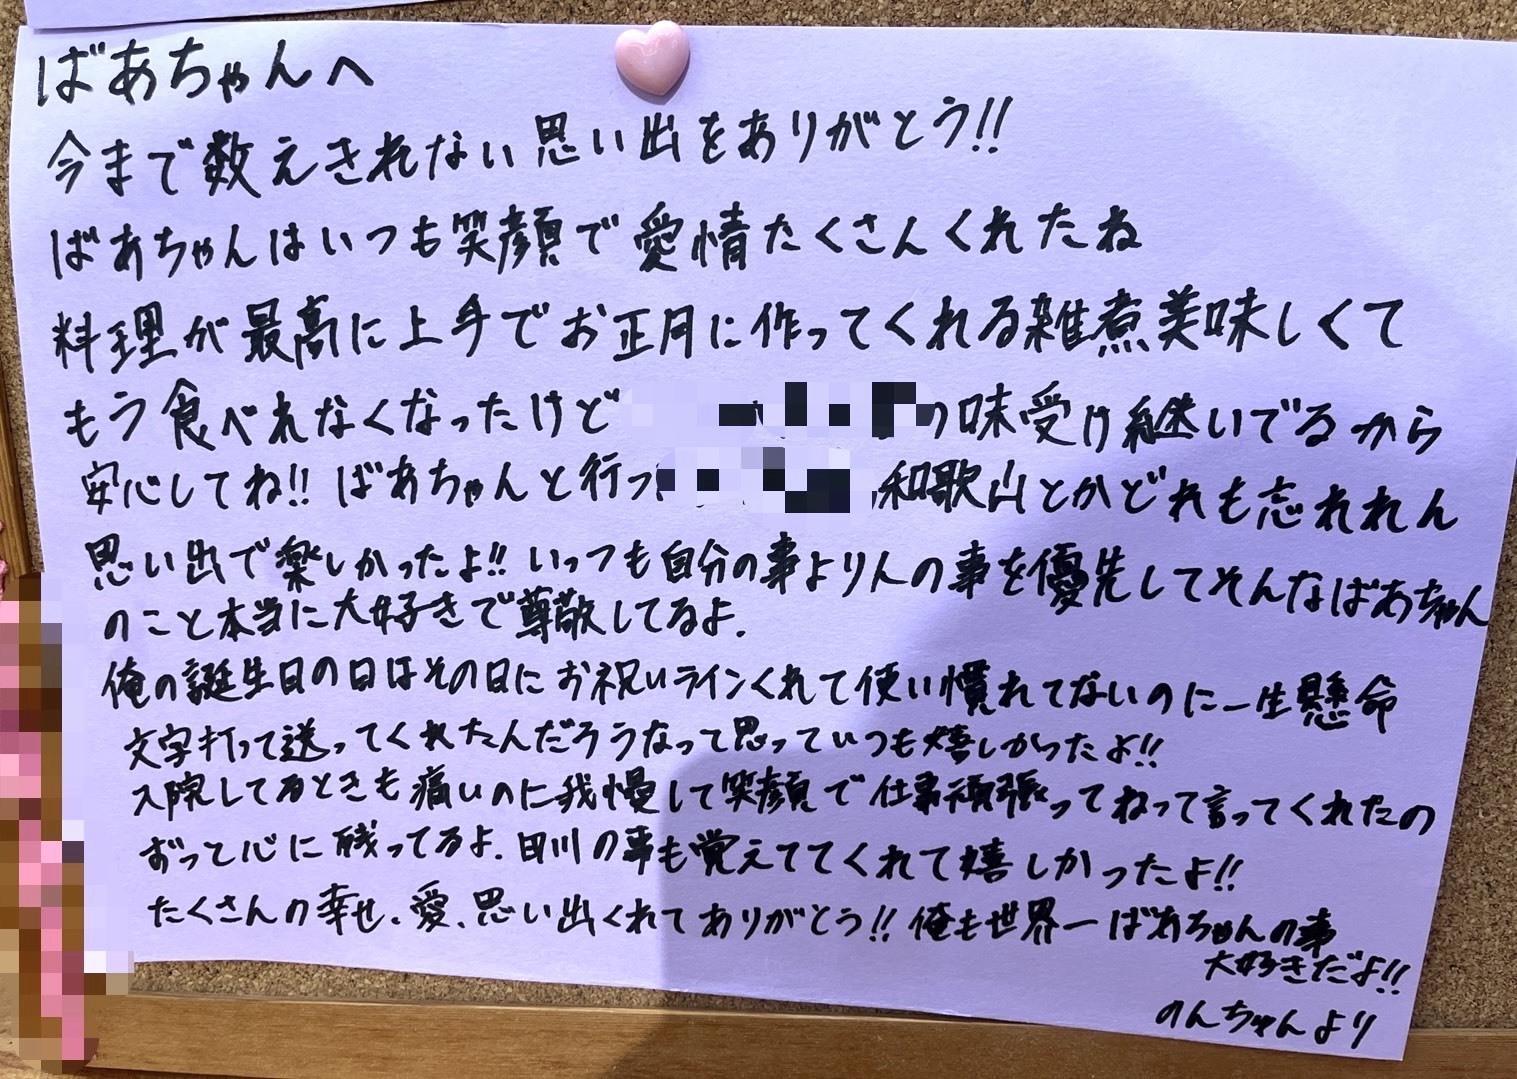 ばあちゃんへ
今まで数えきれない思い出をありがとう!!
ばあちゃんはいつも笑顔で愛情たくさんくれたね
料理が最高に上手でお正月に作ってくれる雑煮美味しくて
もう食べれなくなったけど の味受け継いでるから
安心してね!! ばあちゃんと行っ 和歌山とかどれも忘れれん
思い出で楽しかったよ!! いっつも自分の事より人の事を優先してそんなばあちゃん
のこと本当に大好きで尊敬してるよ.
俺の誕生日の日はその日にお祝いラインくれて使い慣れてないのに一生懸命
文字打って送ってくれたんだろうなって思っていつも嬉しかったよ!!
入院してるときも痛いのに我慢して笑顔で仕事頑張ってねって言ってくれたの
ずっと心に残ってるよ. 田川の事も覚えててくれて嬉しかったよ!!
たくさんの幸せ.愛.思い出くれてありがとう!! 俺も世界一ばあちゃんの事
大好きだよ!!
のんちゃんより